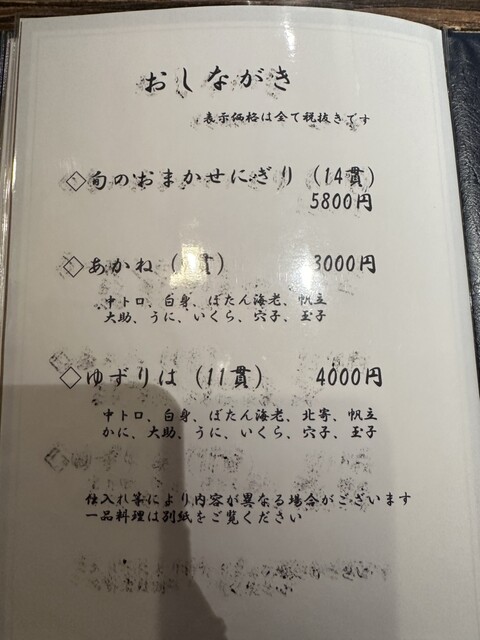 おしながき
表示価格は全て税抜きです
◇旬のおまかせにぎり（14貫）
5800円
◇あかね（ 貫） 3000円
中トロ、白身、ぼたん海老、帆立
大助、うに、いくら、穴子、玉子
◇ゆずりは（11貫） 4000円
中トロ、白身、ぼたん海老、北寄、帆立
かに、大助、うに、いくら、穴子、玉子
仕入れ等により内容が異なる場合がございます
一品料理は別紙をご覧ください